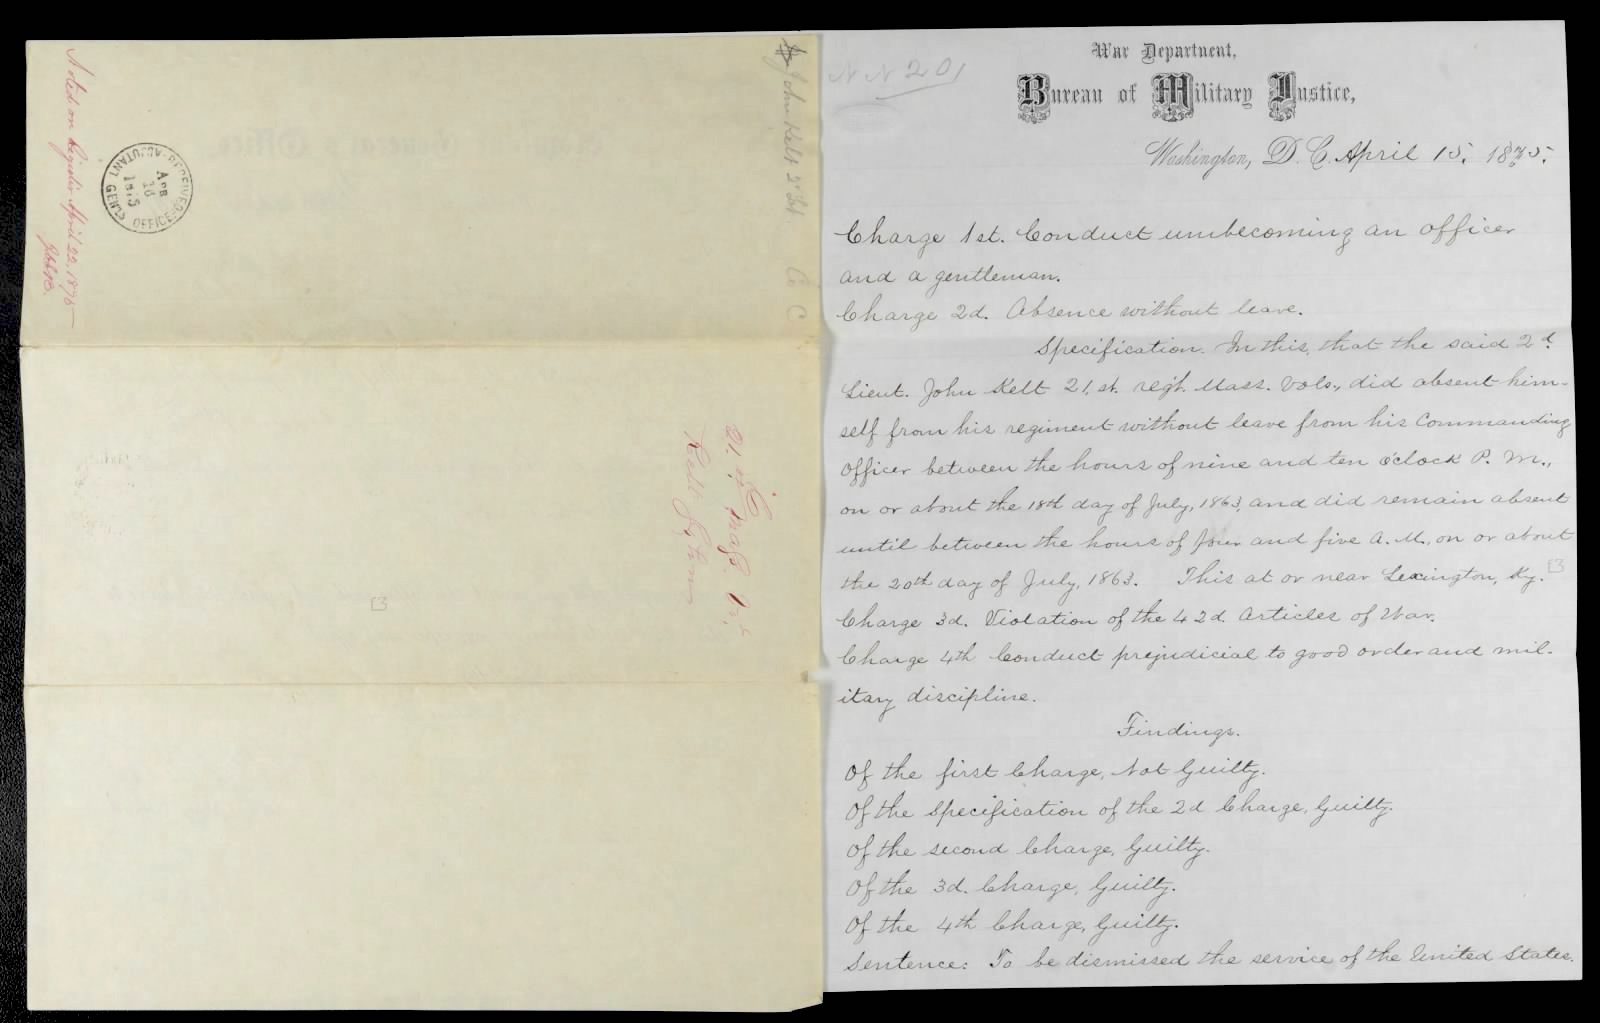 Noted on Register April 22, 1875
RECEIVED-ADJUTANT GENL'S OFFICE-
APR
16
1875
John Kelt 2 Lt. Co C
21. Mass. Vol.
Kelt, John
[3
N N 201
War Department,
Bureau of Military Justice,
Washington, D. C. April 15. 1875.
Charge 1st. Conduct unbecoming an officer
and a gentleman.
Charge 2d. Absence without leave.
Specification. In this, that the said 2d.
Lieut. John Kelt 21.st. reg't. Mass. Vols., did absent him-
self from his regiment without leave from his Commanding
Officer between the hours of nine and ten o'clock P. M.,
on or about the 18th day of July, 1863, and did remain absent
until between the hours of four and five A. M., on or about
the 20th day of July, 1863. This at or near Lexington, Ky. [3
Charge 3d. Violation of the 42d. Articles of War.
Charge 4th Conduct prejudicial to good order and mil-
itary discipline.
Findings.
Of the first Charge, Not Guilty.
Of the Specification of the 2d Charge, Guilty.
Of the second Charge, Guilty.
Of the 3d. Charge, Guilty.
Of the 4th Charge, Guilty.
Sentence: To be dismissed the service of the United States.